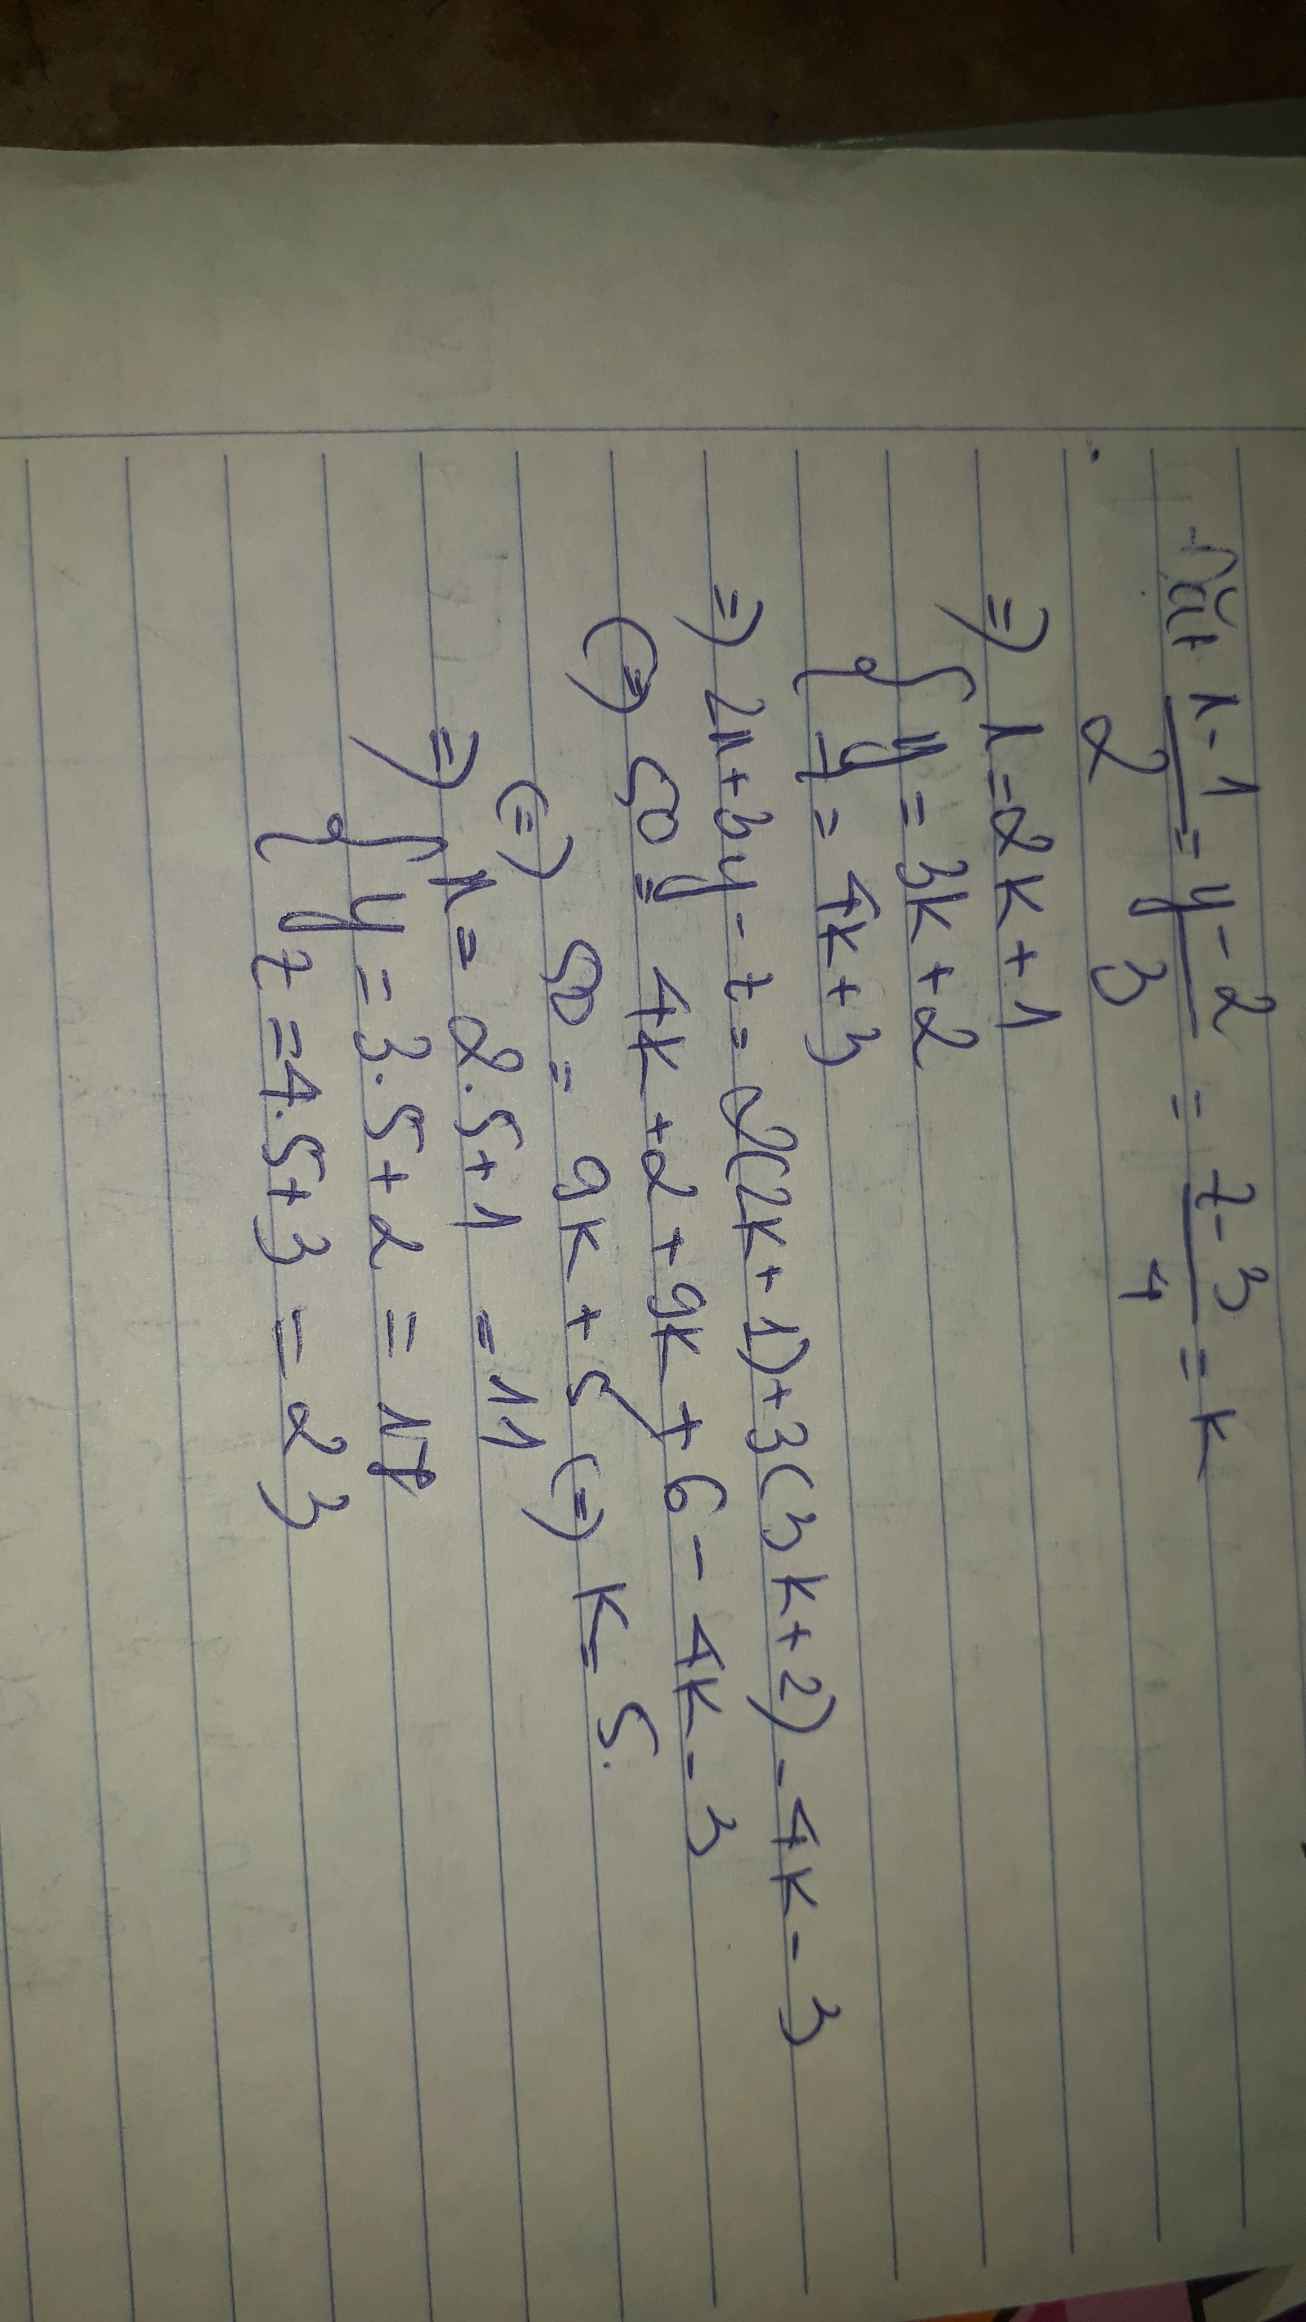 Đặt x-1/2 = y-2/3 = z-3/4 = k
=> { x = 2k+1
y = 3k+2
z = 4k+3
=> 2x+3y-z = 2(2k+1)+3(3k+2)-4k-3
(=) 50 = 4k+2+9k+6-4k-3
(=) 50 = 9k+5 (=) k=5.
=> { x = 2.5+1 = 11
y = 3.5+2 = 17
z = 4.5+3 = 23